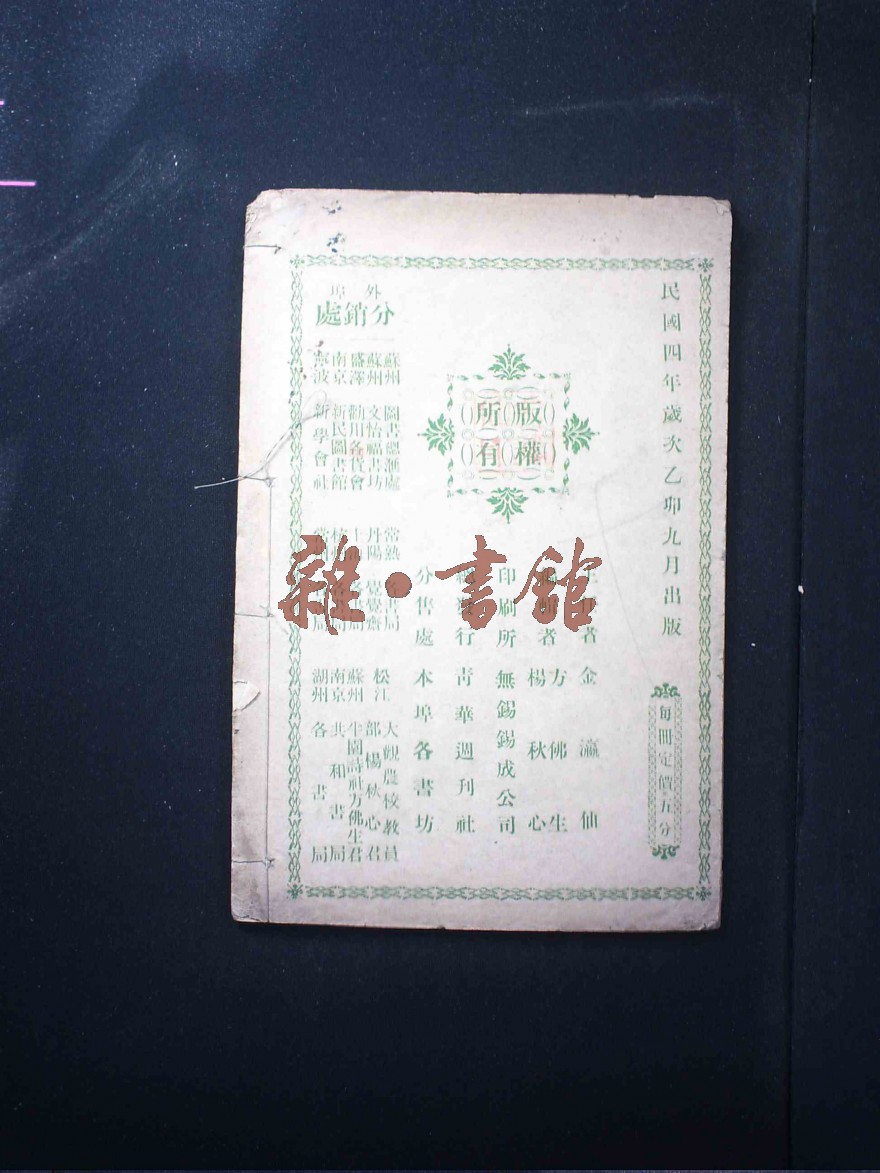 民國四年歲次乙卯九月出版
每冊定價五分
版權
所有
者 金瀛仙
者 方佛生
楊秋心
印刷所 無錫錫成公司
行 青華週刊社
分售處 本埠各書坊
外埠
分銷處
蘇州 圖書總滙處
蘇州 文怡福書坊
盛澤 勸用各貨會
南京 新民圖書館
寧波 新學會社
常熟 書局
丹陽 覺覺齋
松江 大觀農校教員
部楊秋心君
蘇州 坐園詩社方佛生君
南京 共和書局
湖州 各書局
雜·書館